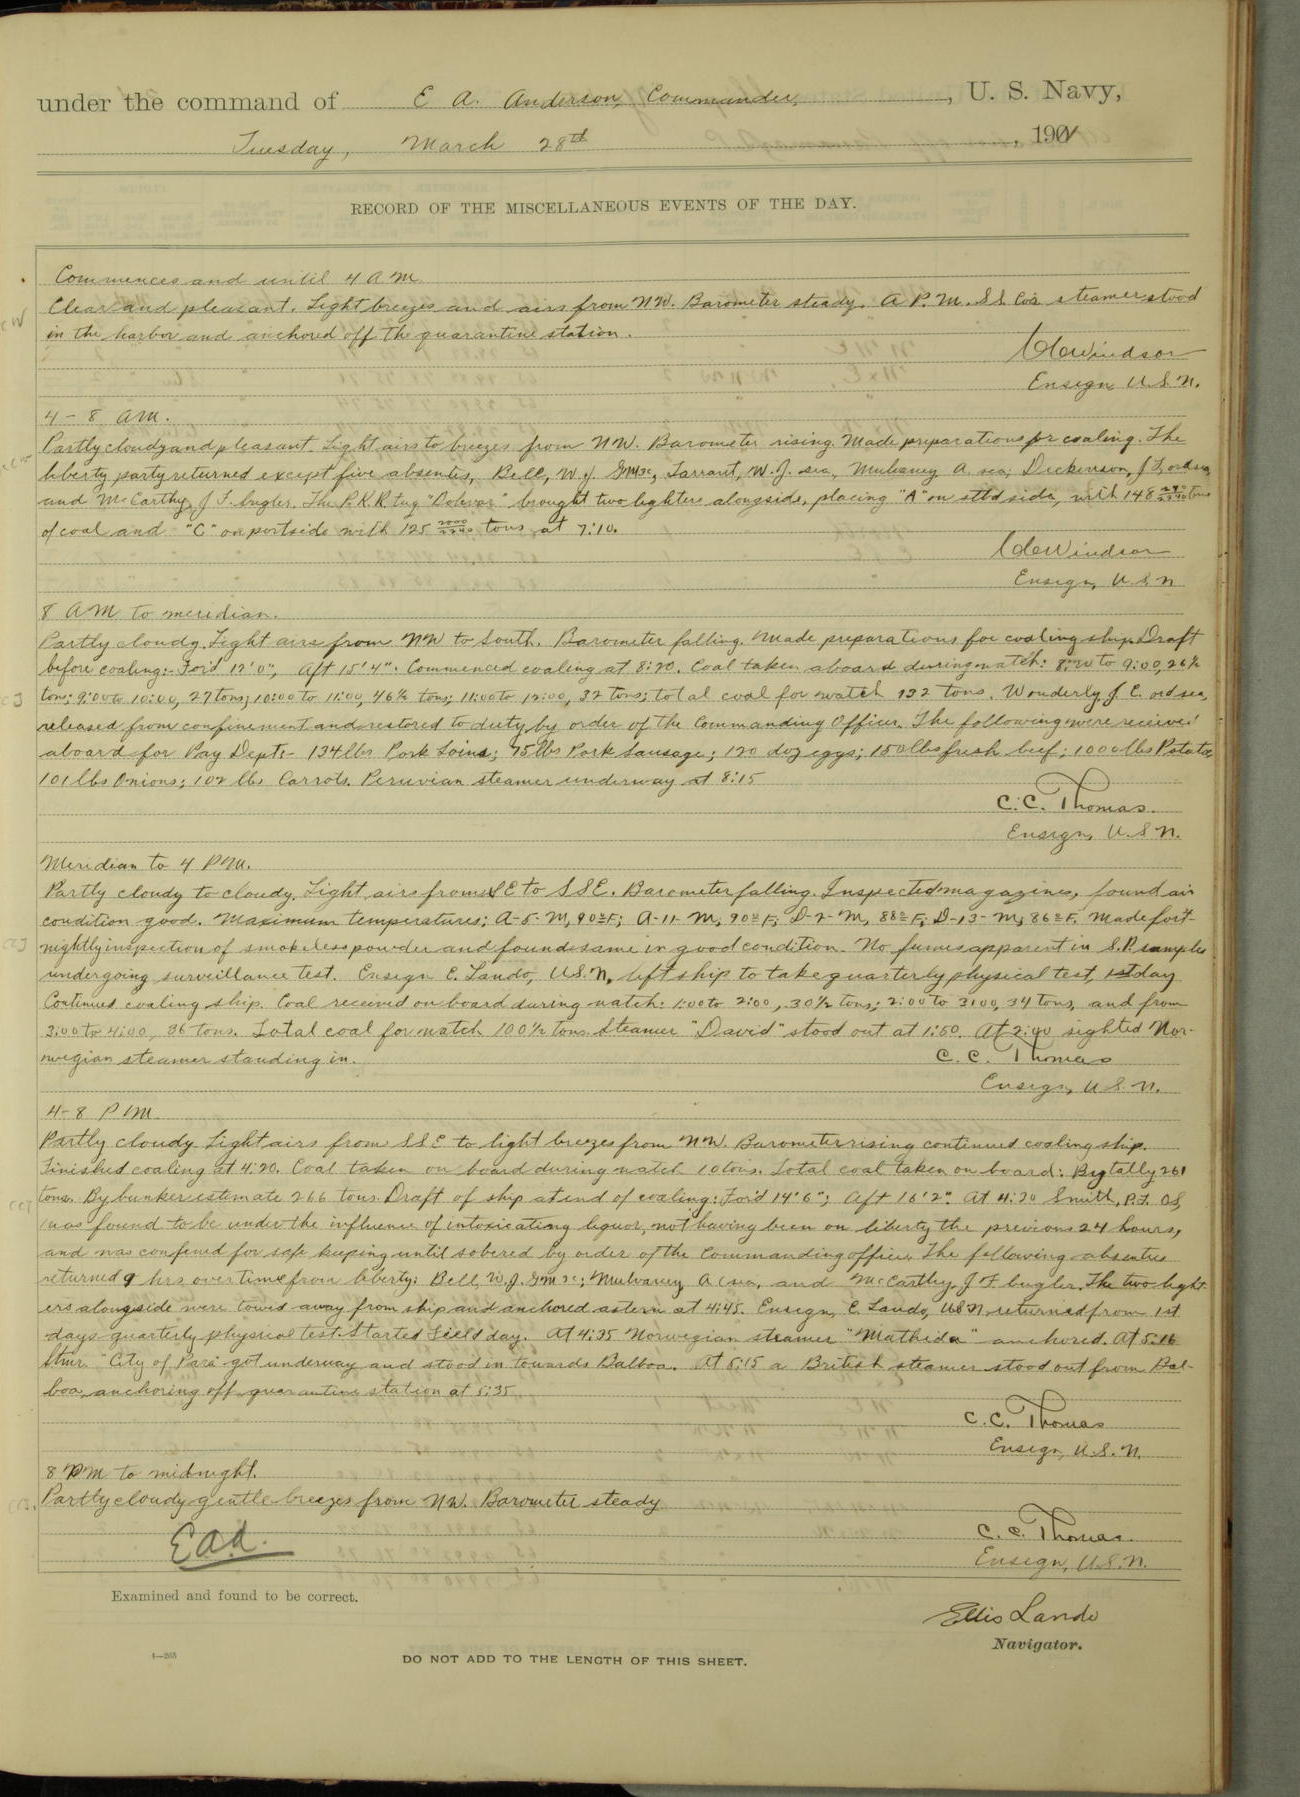 under the command of E A. Anderson, Commander, , U. S. Navy,
Tuesday, March 28th , 190
RECORD OF THE MISCELLANEOUS EVENTS OF THE DAY.
Commences and until 4 A M
Clear and pleasant. Light breezes and airs from NW. Barometer steady. A P. M. S.S. Co's steamer stood
in the harbor and anchored off the quarantine station.
Windsor
Ensign U.S.N.
4 - 8 AM.
Partly cloudy and pleasant. Light airs to breezes from NW. Barometer rising. Made preparations for coaling. The
liberty party returned except five absentees, Bell, W. J. Tarrant, W. J. sea, Mulvaney A. sea; Dickenson, J F, ord sea
and McCarthy, J F. bugler. The P.R.R. tug "Bolivar" brought two lighters alongside, placing "A" on stbd side, with 148 tons
of coal and "C" on port side with 125 2000/2240 tons at 7:10.
Windsor
Ensign, U S N
8 AM to meridian.
Partly cloudy. Light airs from NW to South. Barometer falling. Made preparations for coaling ship. Draft
before coaling:- For'd 12'0", Aft 15'4". Commenced coaling at 8:20. Coal taken aboard during watch: 8:20 to 9:00, 26½
tons; 9:00 to 10:00, 27 tons; 10:00 to 11:00, 46½ tons; 11:00 to 12:00, 32 tons; total coal for watch 132 tons. Wonderly J. C. ord sea,
released from confinement and restored to duty by order of the Commanding Officer. The following were received
aboard for Pay Dept:- 134 lbs Pork Loins; 75 lbs Pork Sausage; 120 doz eggs; 150 lbs fresh beef; 1000 lbs Potatoes,
101 lbs Onions; 102 lbs Carrots. Peruvian steamer underway at 8:15
C. C. Thomas.
Ensign, U.S.N.
Meridian to 4 P.M.
Partly cloudy to cloudy. Light airs from SE to SSE. Barometer falling. Inspected magazines, found air
condition good. Maximum temperatures: A-5-M, 90°F; A-11-M, 90°F; D-2-M, 88°F; D-13-M, 86°F. Made fort-
nightly inspection of smokeless powder and found same in good condition. No fumes apparent in S.P. samples
undergoing surveillance test. Ensign E. Lando, U.S.N, left ship to take quarterly physical test, 1st day
Continued coaling ship. Coal received on board during watch: 1:00 to 2:00, 30½ tons; 2:00 to 3:00, 34 tons, and from
3:00 to 4:00, 36 tons. Total coal for watch 100½ tons. Steamer "David" stood out at 1:50. At 2:40 sighted Nor-
wegian steamer standing in.
C. C. Thomas
Ensign, U.S.N.
4-8 P.M.
Partly cloudy. Light airs from SSE to light breezes from NW. Barometer rising continued coaling ship.
Finished coaling at 4:20. Coal taken on board during watch 10 tons. Total coal taken on board: By tally 261
tons. By bunker estimate 266 tons. Draft of ship at end of coaling: For'd 14'6"; Aft 16'2". At 4:20 Smith, P.F. OS,
was found to be under the influence of intoxicating liquor, not having been on liberty the previous 24 hours,
and was confined for safe keeping until sobered by order of the Commanding officer. The following absentees
returned 9 hrs, overtime from liberty: Bell, W. J. Mulvaney A (sea, and McCarthy J. F. bugler. The two light-
ers alongside were towed away from ship and anchored astern at 4:45. Ensign, E. Lando, USN returned from 1st
days quarterly physical test. Started Field day. At 4:35 Norwegian steamer "Mathida" anchored. At 5:16
Stmr. "City of Para" got underway and stood in towards Balboa. At 5:15 a British steamer stood out from Bal-
boa, anchoring off quarantine station at 5:35
C. C. Thomas
Ensign, U.S.N.
8 PM to midnight.
Partly cloudy gentle breezes from NW. Barometer steady
E a a.
C. C. Thomas.
Ensign, U.S.N.
Examined and found to be correct.
Ellis Lando
Navigator.
DO NOT ADD TO THE LENGTH OF THIS SHEET.